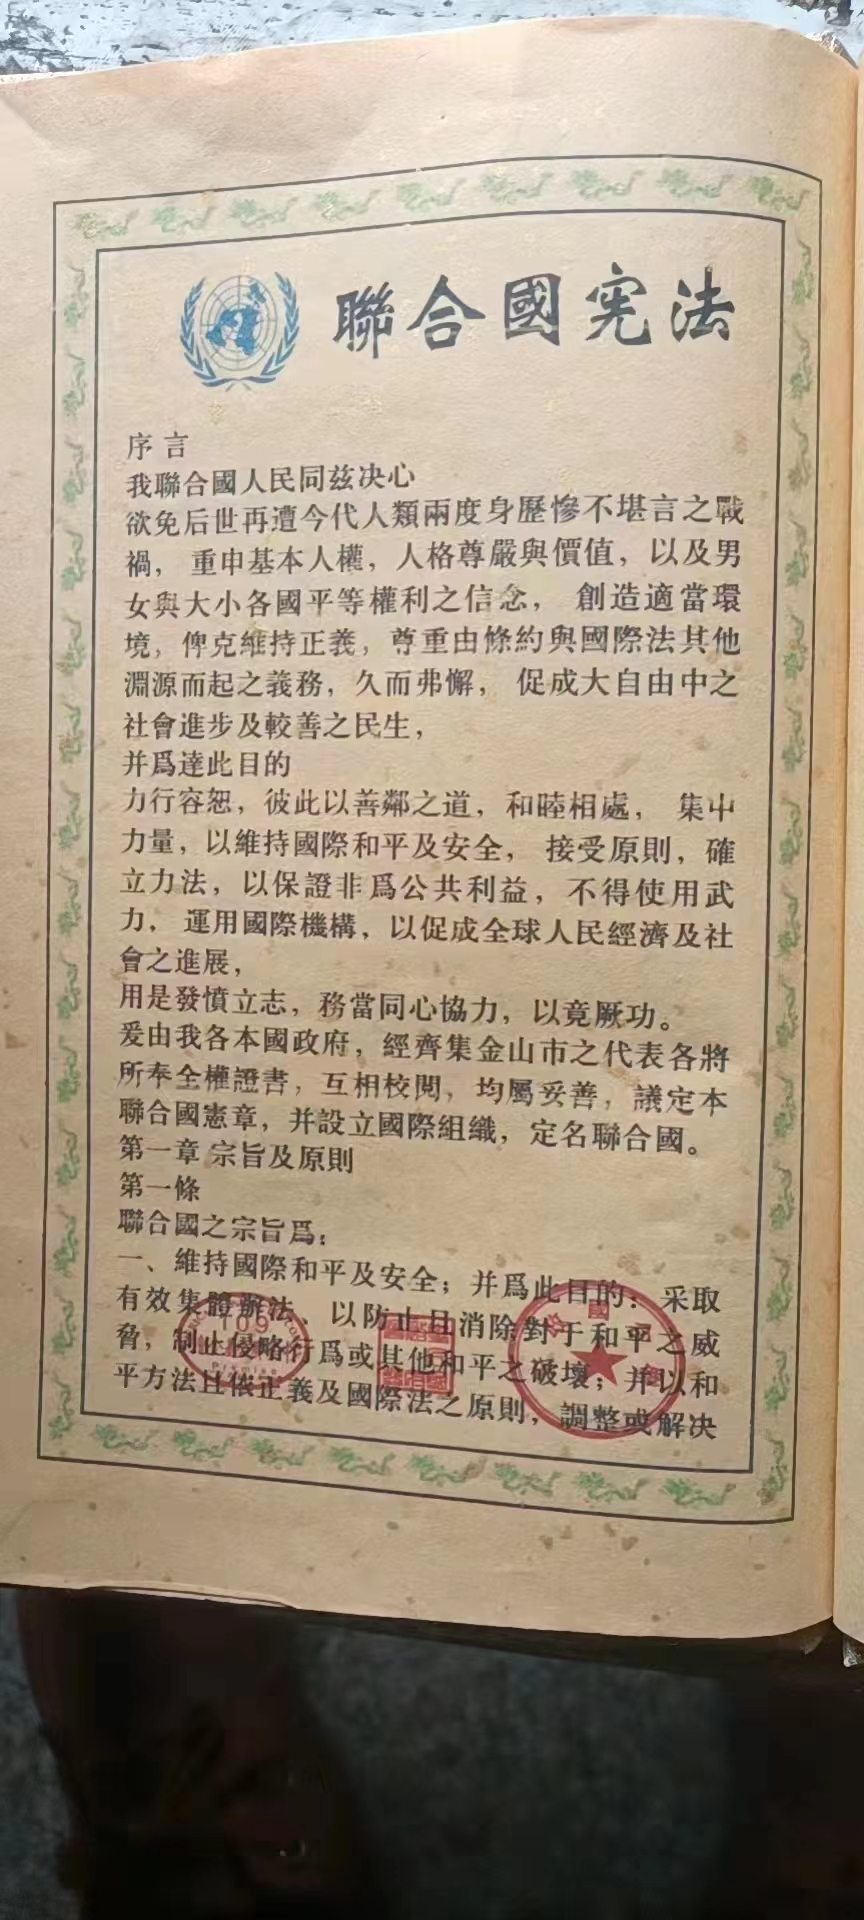 聯合國宪法
序言
我聯合國人民同兹决心
欲免后世再遭今代人類兩度身歷慘不堪言之戰
禍，重申基本人權，人格尊嚴與價值，以及男
女與大小各國平等權利之信念，創造適當環
境，俾克維持正義，尊重由條約與國際法其他
淵源而起之義務，久而弗懈，促成大自由中之
社會進步及較善之民生，
并爲達此目的
力行容恕，彼此以善鄰之道，和睦相處，集中
力量，以維持國際和平及安全，接受原則，確
立力法，以保證非爲公共利益，不得使用武
力，運用國際機構，以促成全球人民經濟及社
會之進展，
用是發憤立志，務當同心協力，以竟厥功。
爰由我各本國政府，經齊集金山市之代表各將
所奉全權證書，互相校閱，均屬妥善，議定本
聯合國憲章，并設立國際組織，定名聯合國。
第一章 宗旨及原則
第一條
聯合國之宗旨爲：
一、維持國際和平及安全；并爲此目的：采取
有效集體辦法、以防止且消除對于和平之威
脅，制止侵略行爲或其他和平之破壞；并以和
平方法且依正義及國際法之原則，調整或解决
109